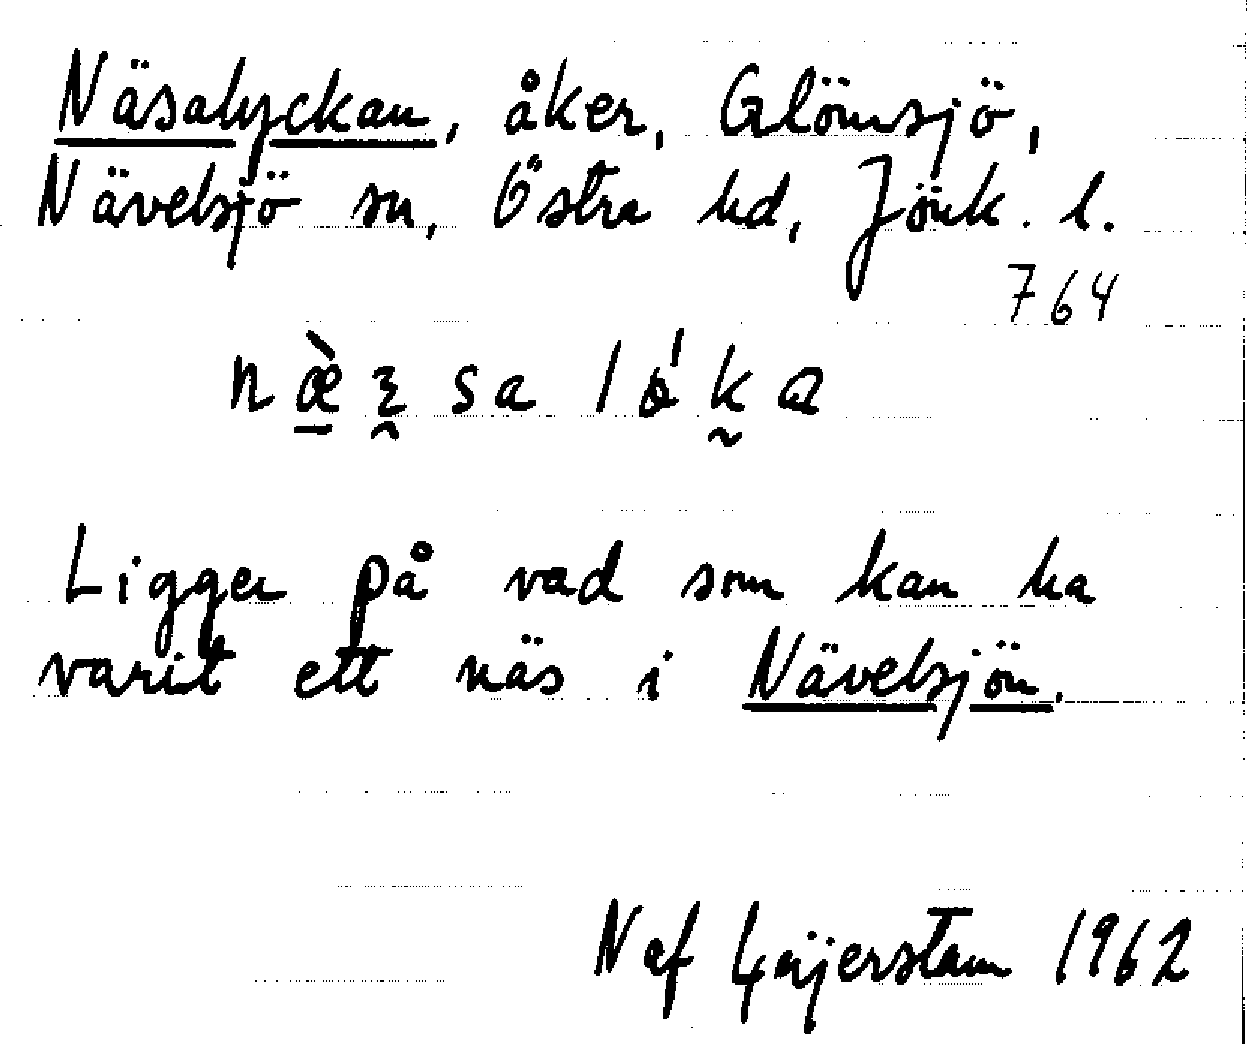 Näsalyckan, åker, Glömsjö,
Nävelsjö sn, Östra hd, Jönk. l.
764
Ligger på vad som kan ha
varit ett näs i Nävelsjön.
N af Geijerstam 1962